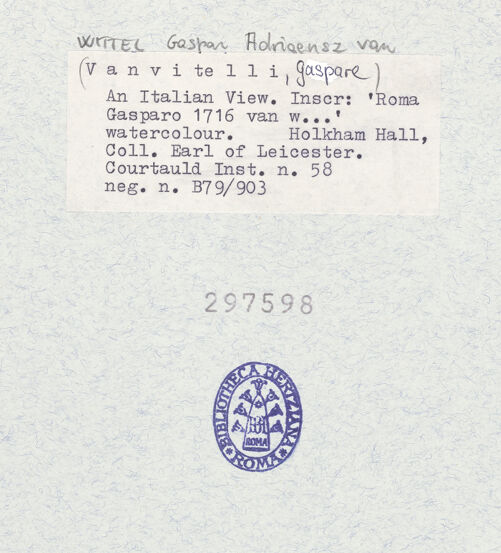 WITTEL Gaspar Adriaensz van
(Vanvitelli, gaspare)
An Italian View. Inscr: 'Roma
Gasparo 1716 van w...'
watercolour. Holkham Hall,
Coll. Earl of Leicester.
Courtauld Inst. n. 58
neg. n. B79/903
297598
BIBLIOTHECA HERTZIANA
ROMA
* ROMA *